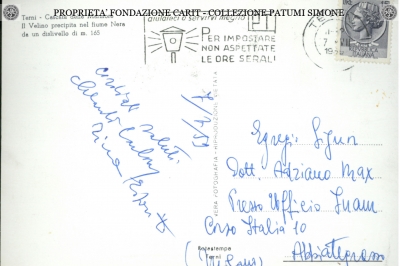 PROPRIETA' FONDAZIONE CARIT - COLLEZIONE PATUMI SIMONE
Terni - Cascata delle
Il Velino precipita nel fiume Nera
da un dislivello di m. 165
aiutateci a servirvi meglio
PER IMPOSTARE
NON ASPETTATE
LE ORE SERALI
7/7/59
Cordiali saluti
Egregio Signor
Dott. Adriano Max
Presso Ufficio
Corso Italia 10
Abbiategrasso
(Milano)
VERA FOTOGRAFIA - RIPRODUZIONE VIETATA
Terni